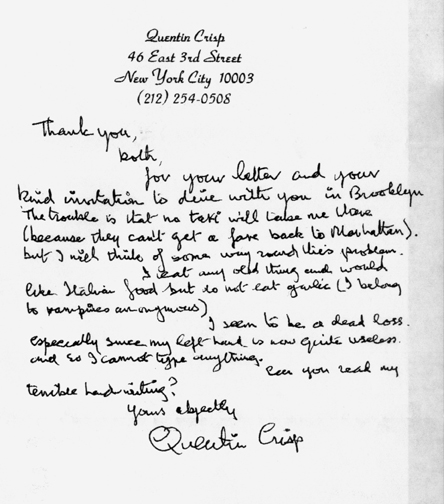 Quentin Crisp
46 East 3rd Street
New York City 10003
(212) 254-0508
Thank you,
both,
for your letter and your
kind invitation to dine with you in Brooklyn
The trouble is that no taxi will take me there
(because they can't get a fare back to Manhattan).
but I will think of some way round this problem.
I eat any old thing and would
like Italian food but do not eat garlic (I belong
to vampires anonymous)
I seem to be a dead loss.
especially since my left hand is now quite useless.
and so I cannot type anything.
Can you read my
terrible handwriting?
Yours abjectly
Quentin Crisp